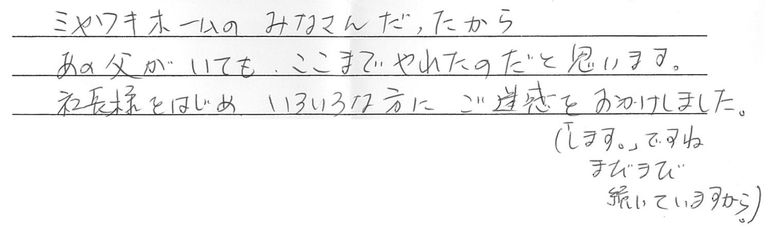 ミヤワキホームの みなさんだったから
あの父がいても、ここまでやれたのだと思います。
社長様をはじめ いろいろな方に ご迷惑をおかけしました。
(「します。」ですね
まだまだ
続いていますから。)